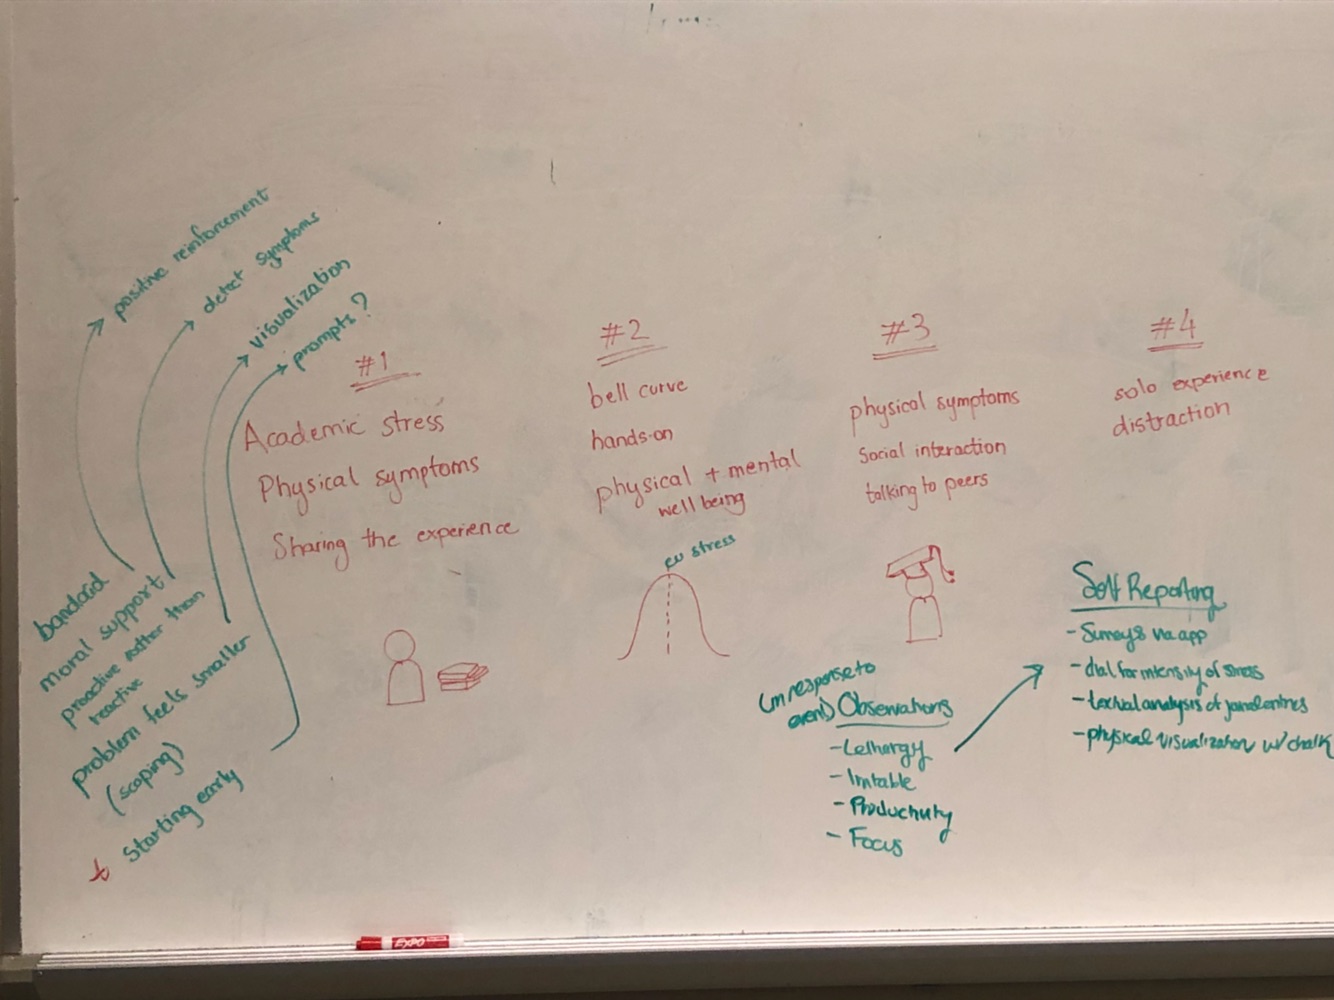 positive reinforcement
detect symptoms
visualization
prompts?
bandaid
moral support
proactive rather than
reactive
problem feels smaller
(scoping)
starting early
#1
Academic stress
Physical symptoms
Sharing the experience
#2
bell curve
hands-on
physical + mental
well being
eu stress
#3
physical symptoms
social interaction
talking to peers
(in response to
event) Observations
- Lethargy
- Irritable
- Productivity
- Focus
#4
solo experience
distraction
Self Reporting
- Surveys via app
- dial for intensity of stress
- textual analysis of journal entries
- physical visualization w/ chalk
EXPO